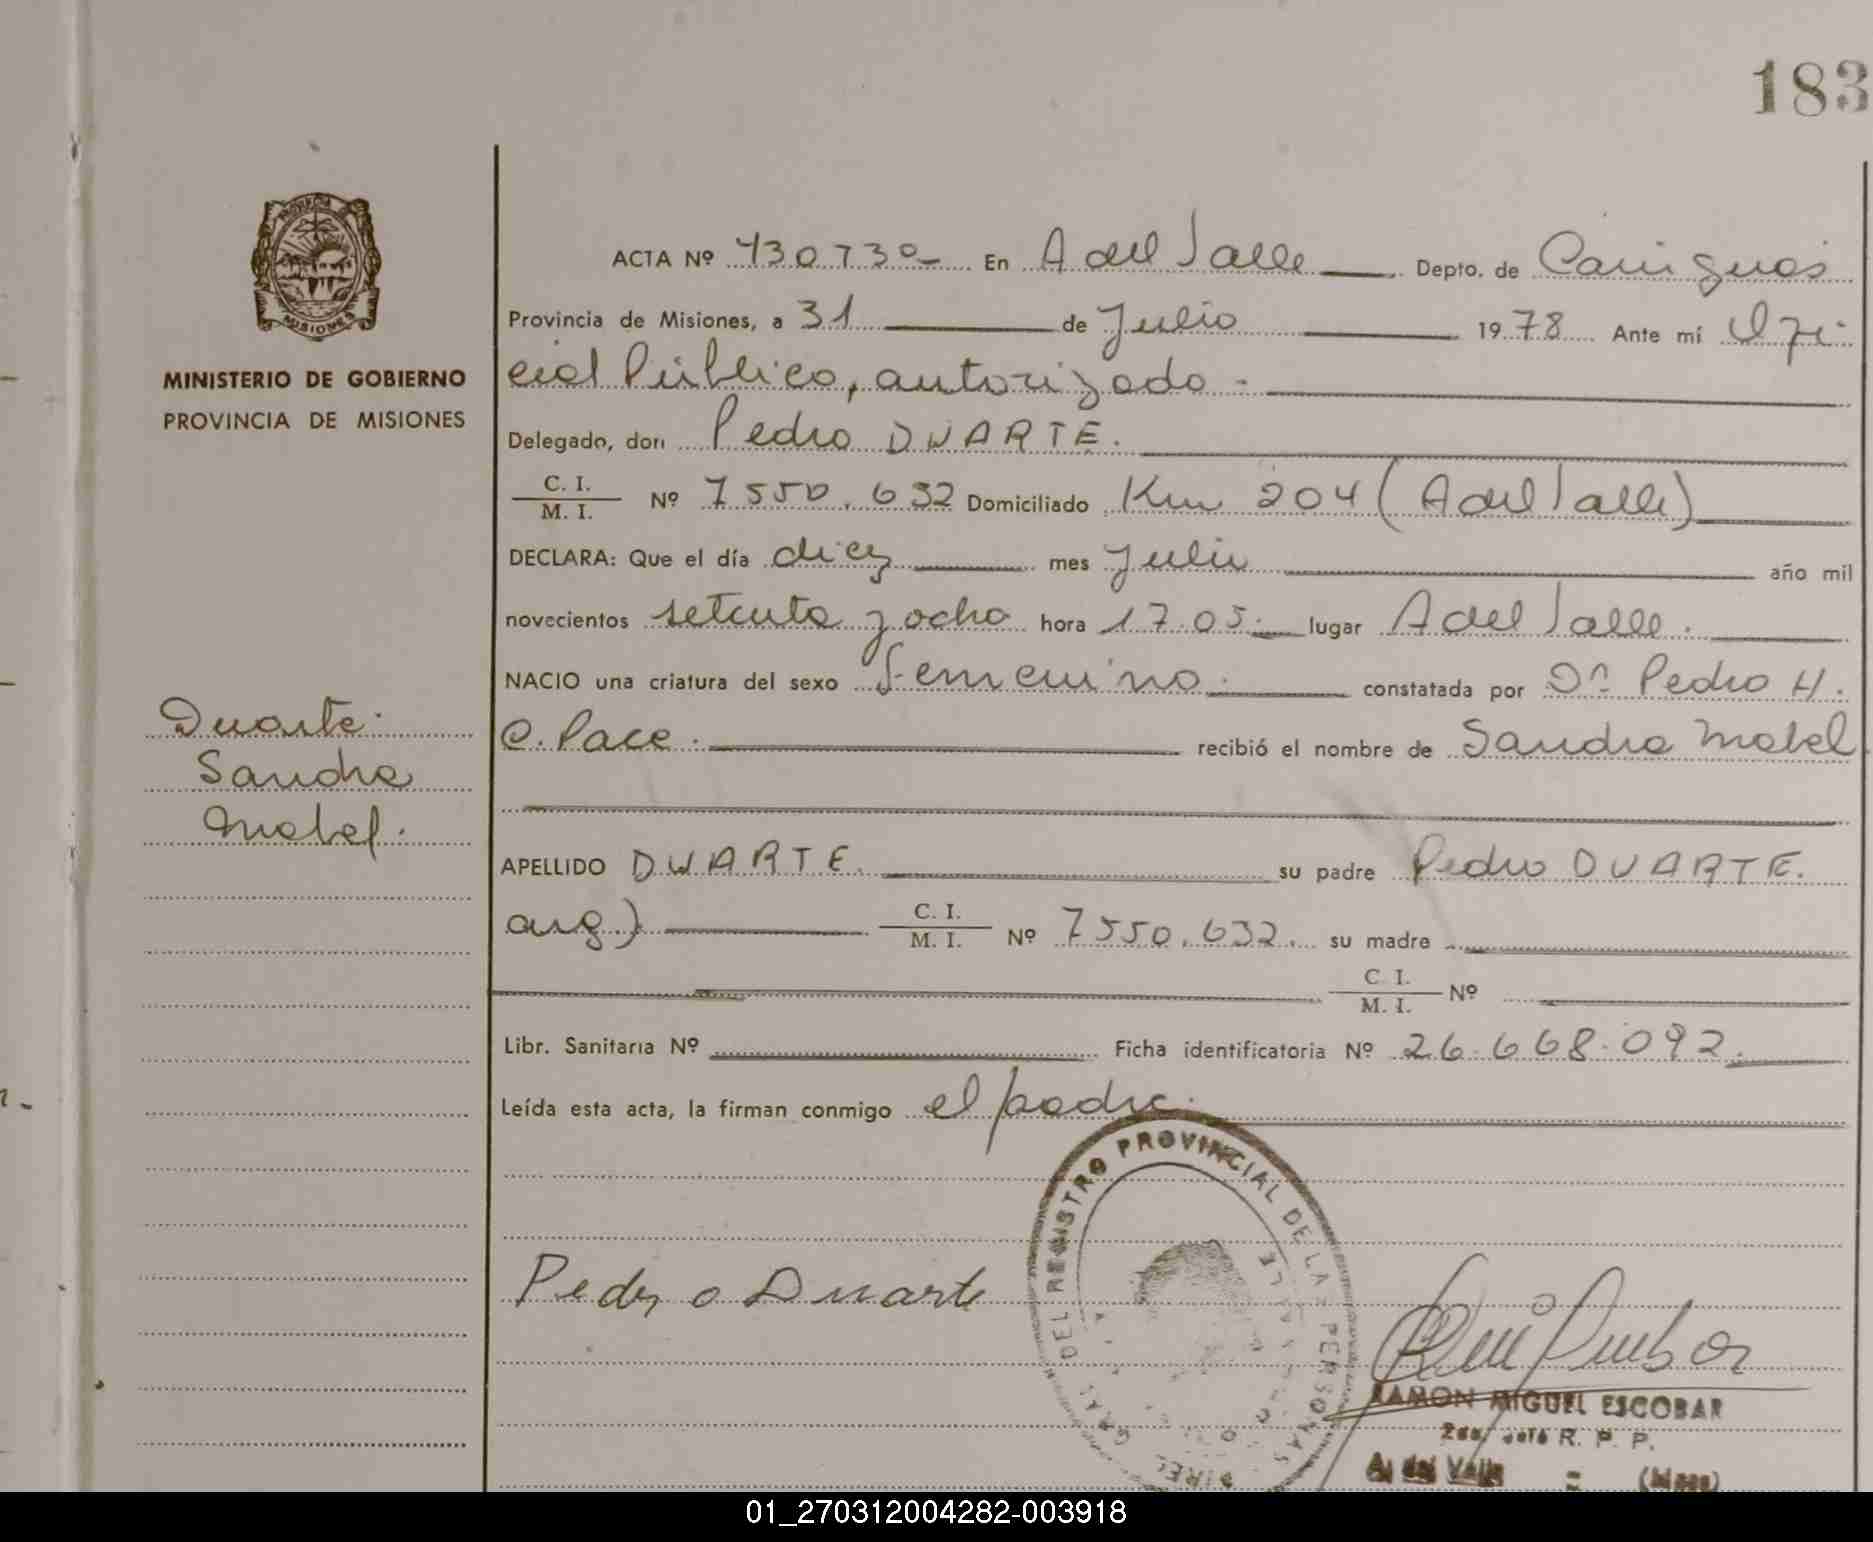 183
ACTA Nº 730730 En A del Valle Depto. de Cainguás
Provincia de Misiones, a 31 de Julio 1978 Ante mí Ofi-
cial Público, autorizado.-
MINISTERIO DE GOBIERNO
PROVINCIA DE MISIONES
Delegado, don Pedro DUARTE.
C. I.
M. I.
Nº 7550.632 Domiciliado Km 204 (A del Valle)
DECLARA: Que el día diez mes Julio año mil
novecientos setenta y ocho hora 17.05.- lugar A del Valle.
NACIO una criatura del sexo femenino. constatada por Dr. Pedro H.
C. Pace. recibió el nombre de Sandra Mabel
Duarte.
Sandra
Mabel.
APELLIDO DUARTE. su padre Pedro DUARTE.
arg.) C. I.
M. I.
Nº 7550.632. su madre
C. I.
M. I.
Nº
Libr. Sanitaria Nº Ficha identificatoria Nº 26.668.092.
Leída esta acta, la firman conmigo el padre.
Pedro Duarte
REGISTRO PROVINCIAL DE LAS PERSONAS
DIREC. GRAL. DEL
RAMON MIGUEL ESCOBAR
R. P. P.
A. del Valle = (Mnes)
01_270312004282-003918